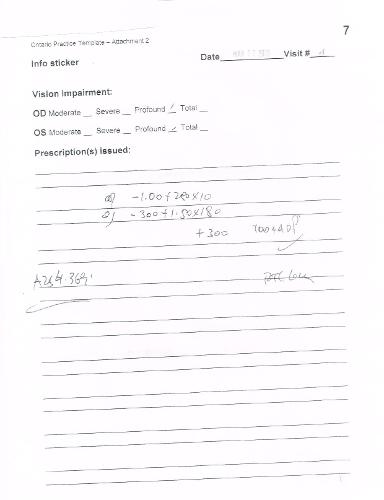 7
Ontario Practice Template – Attachment 2
Info sticker
Date Visit #
Vision Impairment:
OD Moderate __ Severe __ Profound ✓ Total __
OS Moderate __ Severe __ Profound ✓ Total __
Prescription(s) issued:
-1.00+250x10
-300+1.50x180
+300